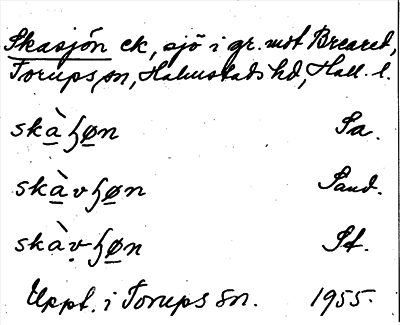 Skasjön ek, sjö i gr. mot Breared,
Torups sn, Halmstads hd, Hall. l.
skàɧøn Sa.
skàvɧøn Sand.
skàvɧøn St.
Uppt. i Torups sn. 1955.